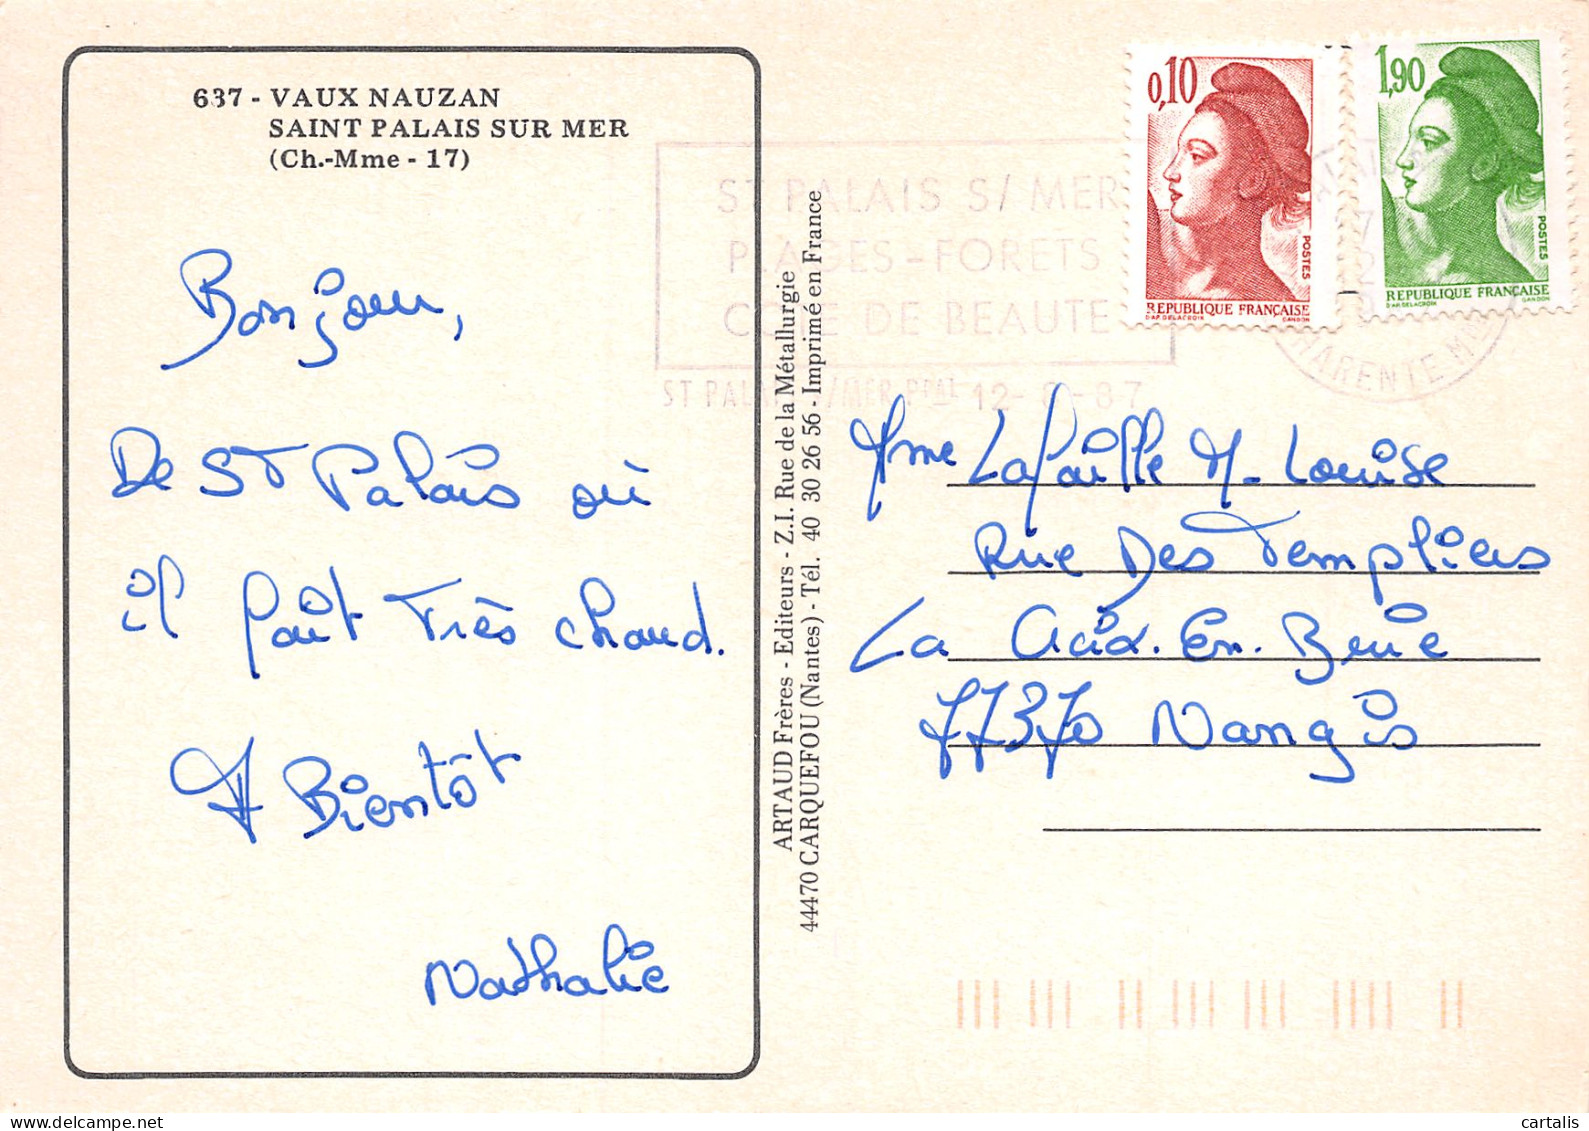 637 - VAUX NAUZAN
SAINT PALAIS SUR MER
(Ch.-Mme - 17)
Bonjour,
De St Palais où
il fait très chaud.
A Bientôt
Nathalie
ARTAUD Frères - Editeurs - Z.I. Rue de la Métallurgie
44470 CARQUEFOU (Nantes) - Tél. 40 30 26 56 - Imprimé en France
ST PALAIS S/ MER
PLAGES - FORETS
COTE DE BEAUTE
ST PALAIS S/MER PPAL 12-8-87
0,10
POSTES
REPUBLIQUE FRANÇAISE
D'AP. DELACROIX GANDON
1,90
POSTES
REPUBLIQUE FRANÇAISE
D'AP. DELACROIX GANDON
CHARENTE Mme
Mme Lafaille M. Louise
Rue Des Templiers
La Croix. En. Brie
77370 Nangis
cartalis